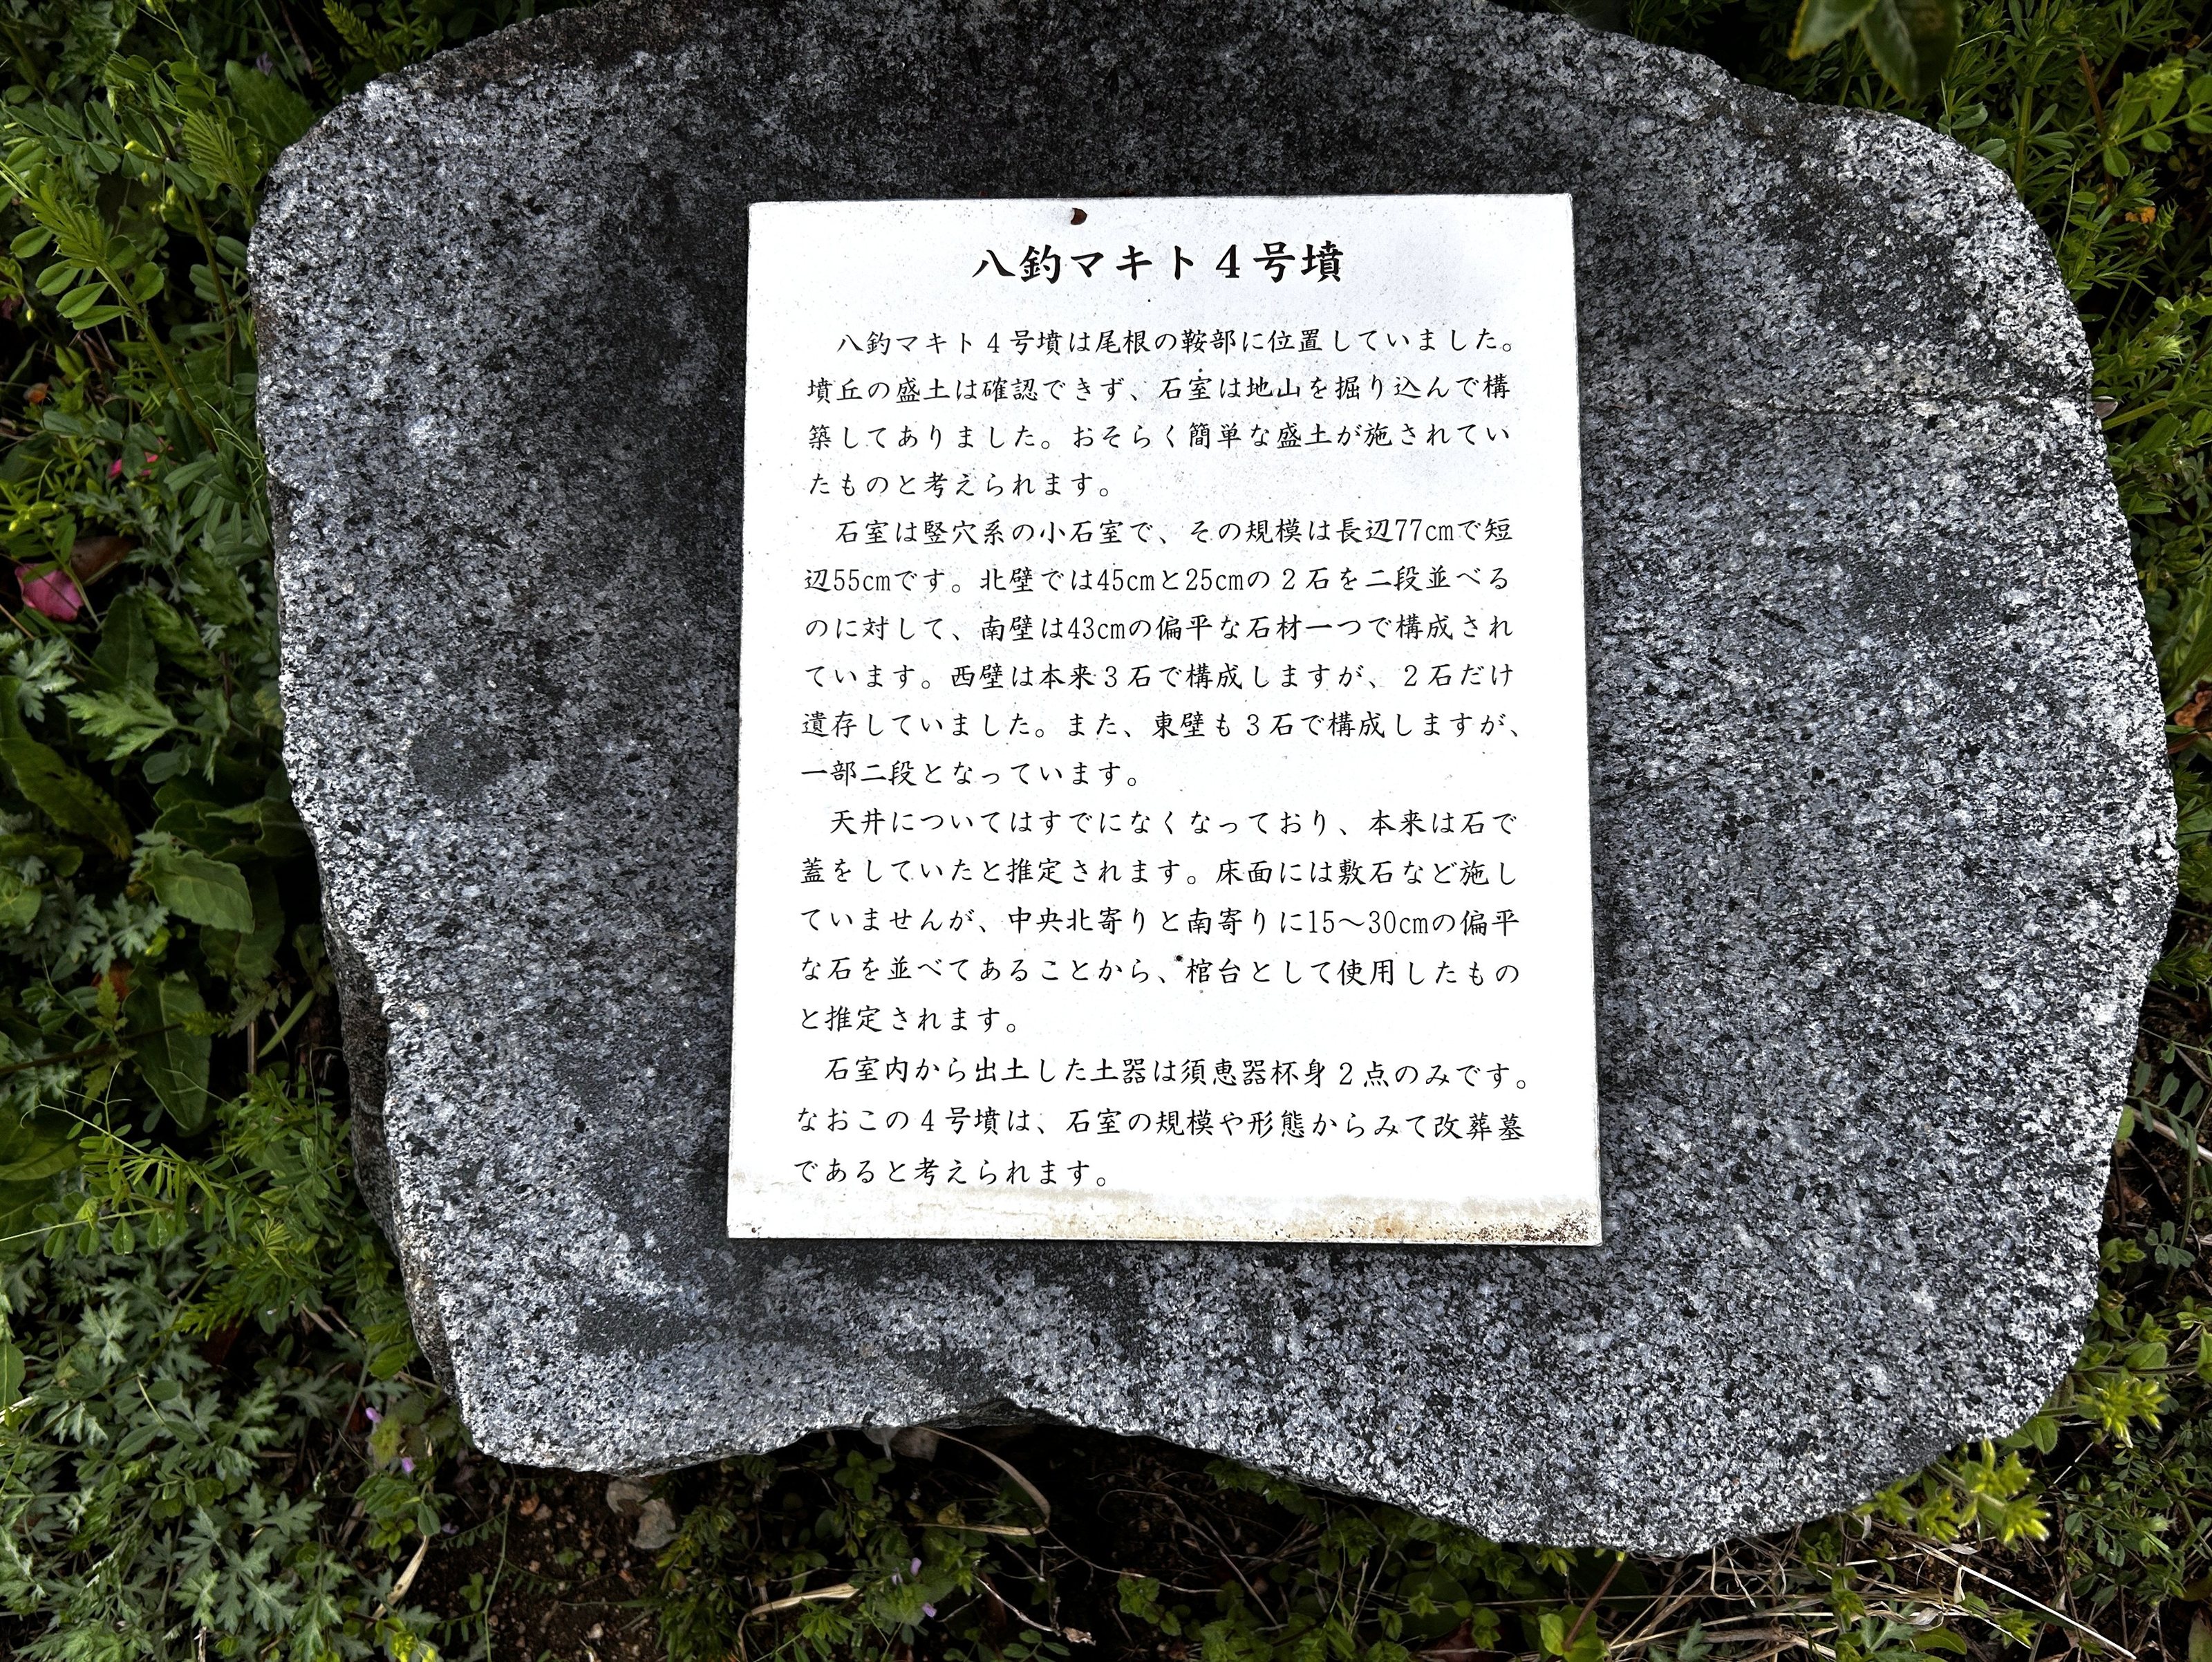 八釣マキト４号墳
八釣マキト４号墳は尾根の鞍部に位置していました。
墳丘の盛土は確認できず、石室は地山を掘り込んで構
築してありました。おそらく簡単な盛土が施されてい
たものと考えられます。
石室は竪穴系の小石室で、その規模は長辺77cmで短
辺55cmです。北壁では45cmと25cmの２石を二段並べる
のに対して、南壁は43cmの偏平な石材一つで構成され
ています。西壁は本来３石で構成しますが、２石だけ
遺存していました。また、東壁も３石で構成しますが、
一部二段となっています。
天井についてはすでになくなっており、本来は石で
蓋をしていたと推定されます。床面には敷石など施し
ていませんが、中央北寄りと南寄りに15～30cmの偏平
な石を並べてあることから、棺台として使用したもの
と推定されます。
石室内から出土した土器は須恵器杯身２点のみです。
なおこの４号墳は、石室の規模や形態からみて改葬墓
であると考えられます。